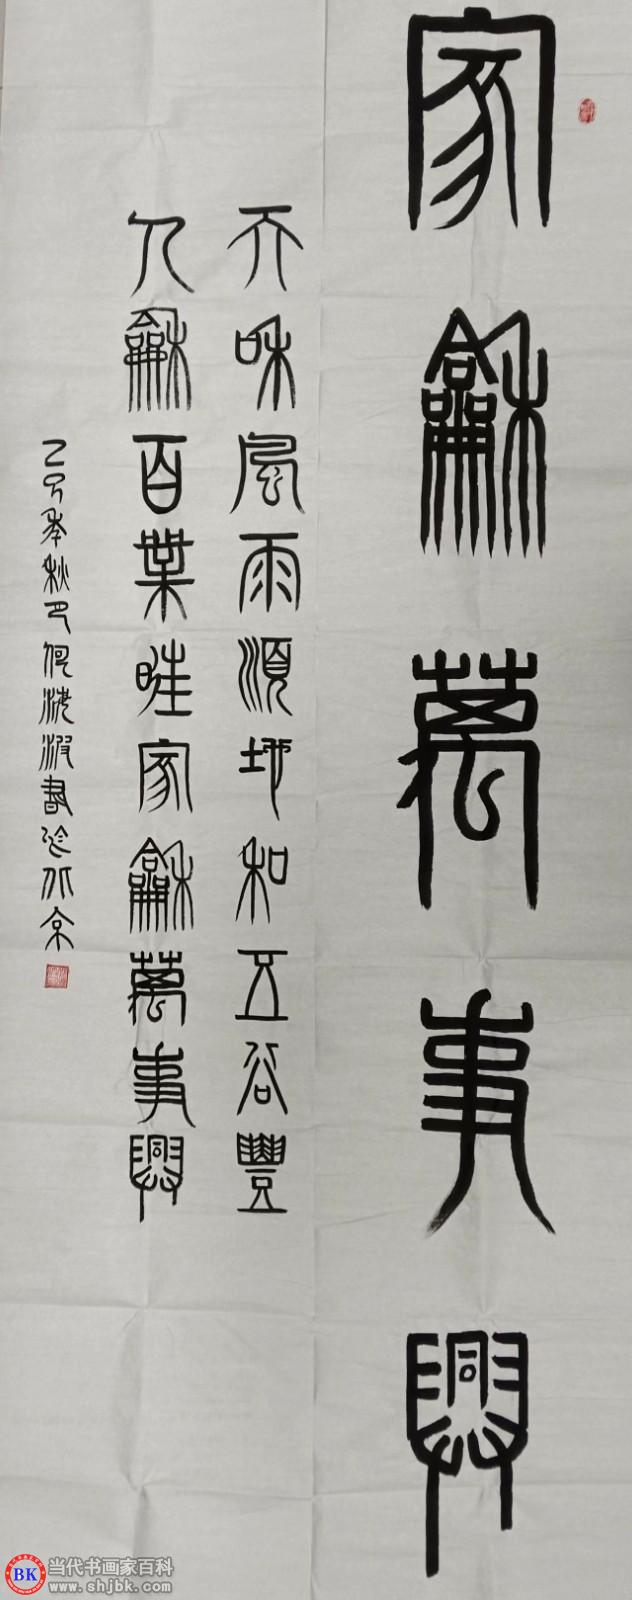 家龢萬事興
天咊風雨順地和五谷豐
人龢百業旺家龢萬事興
乙巳年秋月何波書於北京
BK
当代书画家百科
www.shjbk.com